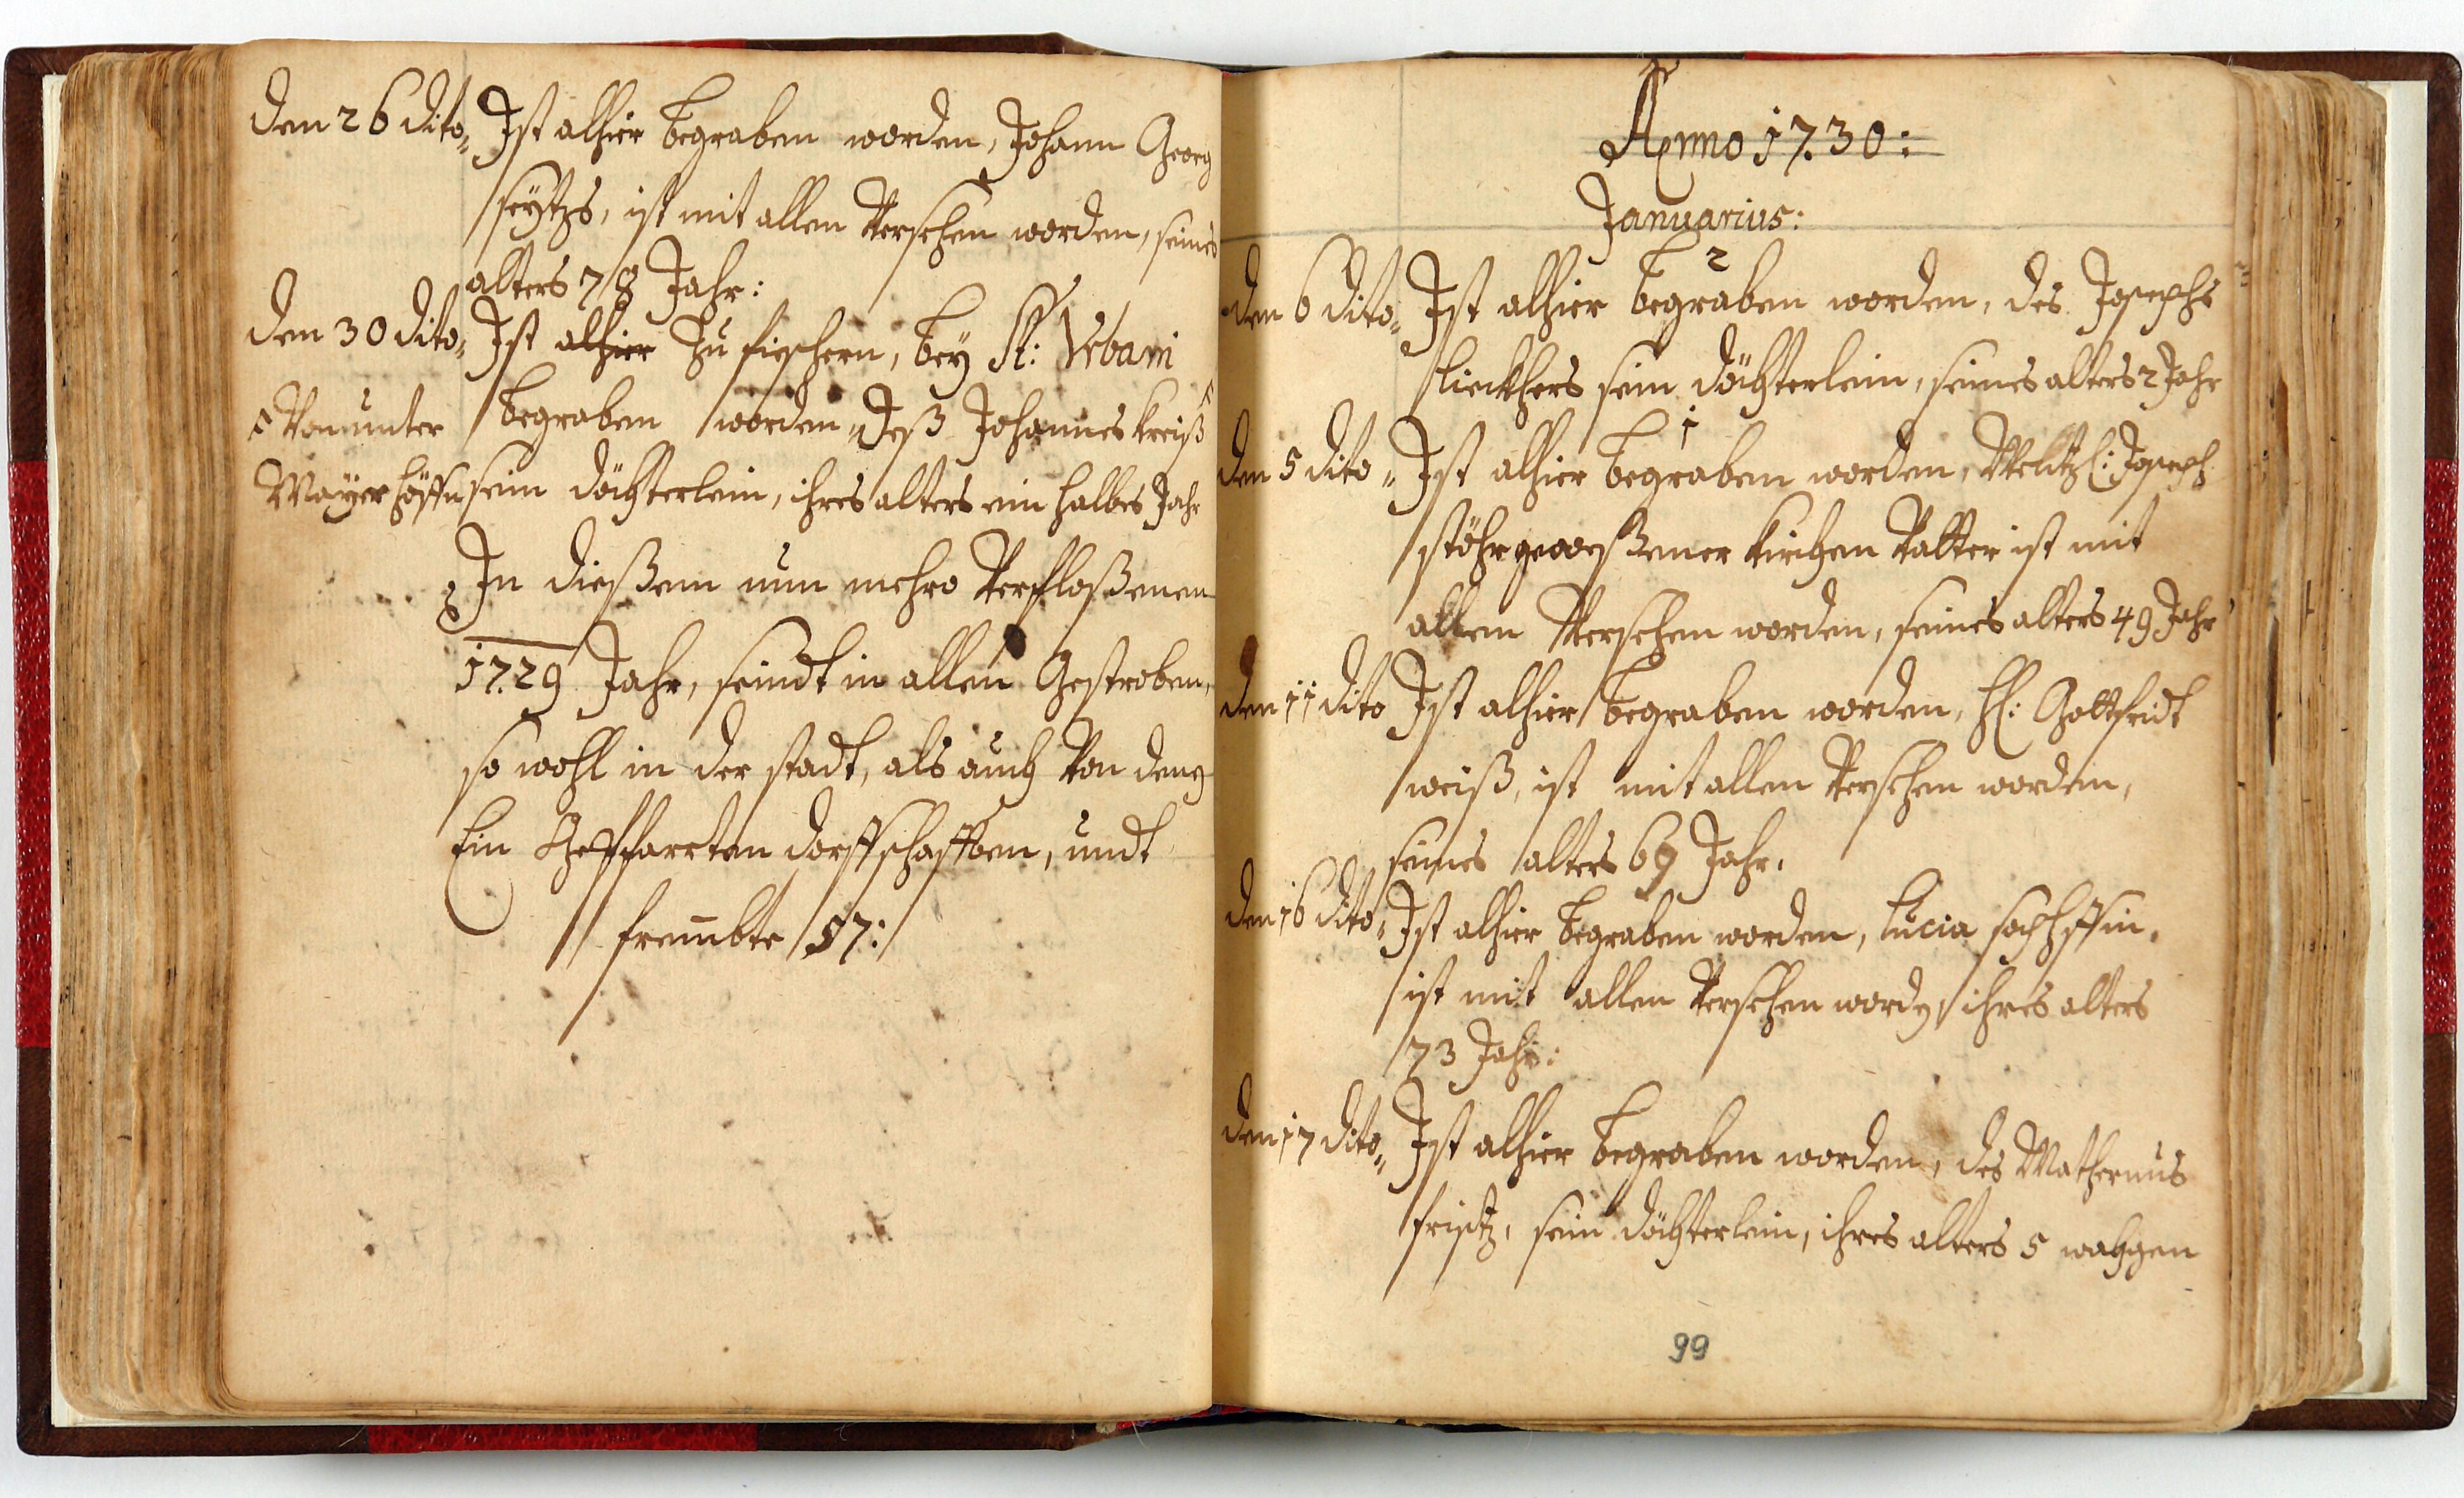 den 26 dito„ Ist alhier begraben worden, Johann Georg
seÿtzs, ist mit allen Versehen worden, seines
alters 78 Jahr:
den 30 dito„ Ist alhier Zu fischern, beÿ St: Vrbani
Von unter begraben worden„ deß Johannes kreiß
Maÿerhöffn sein döchterlein, ihres alters ein halbes Jahr
In dießem nun mehro Verfloßenen
1729 Jahr, seindt in allen Gestroben,
so wohl in der stadt, als auch Von deng
Ein Gepfarrten dorffschafften, undt
frembte 57:
Anno 1730:
Januarius:
2
den 6 dito„ Ist alhier begraben worden, des Josephs
sein döchterlein, seines alters 2 Jahr
1
den 5 dito„ Ist alhier begraben worden, Joseph
stöhr geweßener kirchen Vatter ist mit
allem Versehen worden, seines alters 49 Jahr
den 11 dito Ist alhier begraben worden, H: Gottfridt
weiß, ist mit allen Versehen worden,
seines alters 69 Jahr.
den 16 dito„ Ist alhier begraben worden, Lucia
ist mit allen Versehen word, ihres alters
73 Jahr:
den 17 dito„ Ist alhier begraben worden, des Mathernus
fritz, sein döchterlein, ihres alters 5 wochgen
99